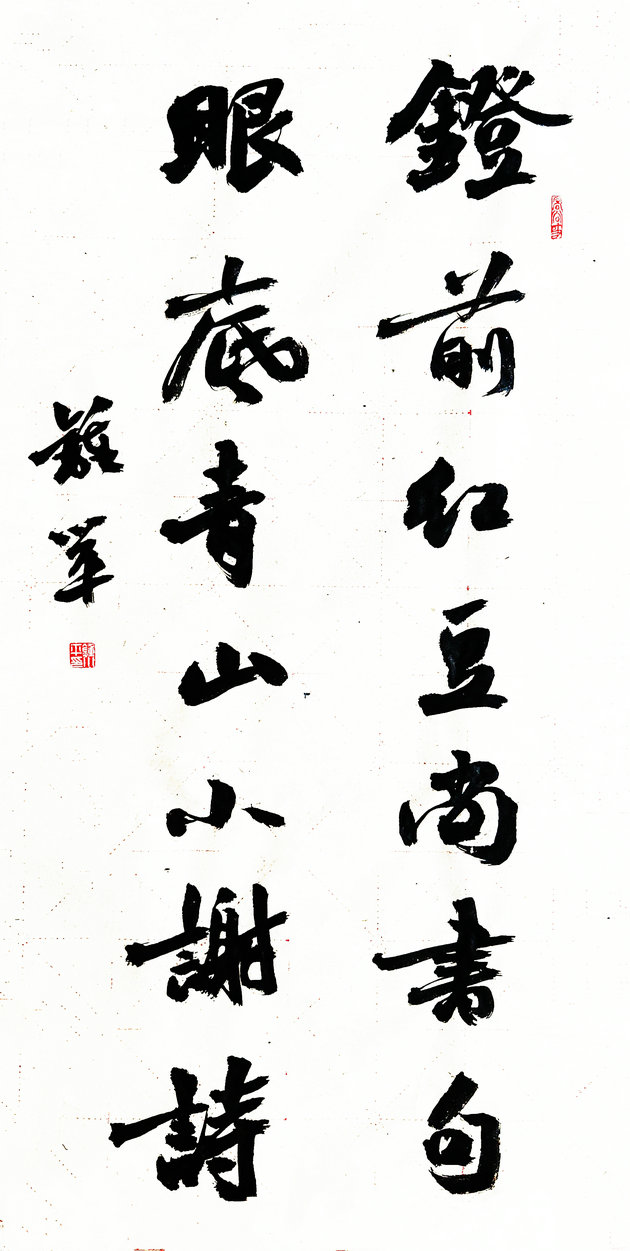 鐙前红豆尚書句
眼底青山小謝詩